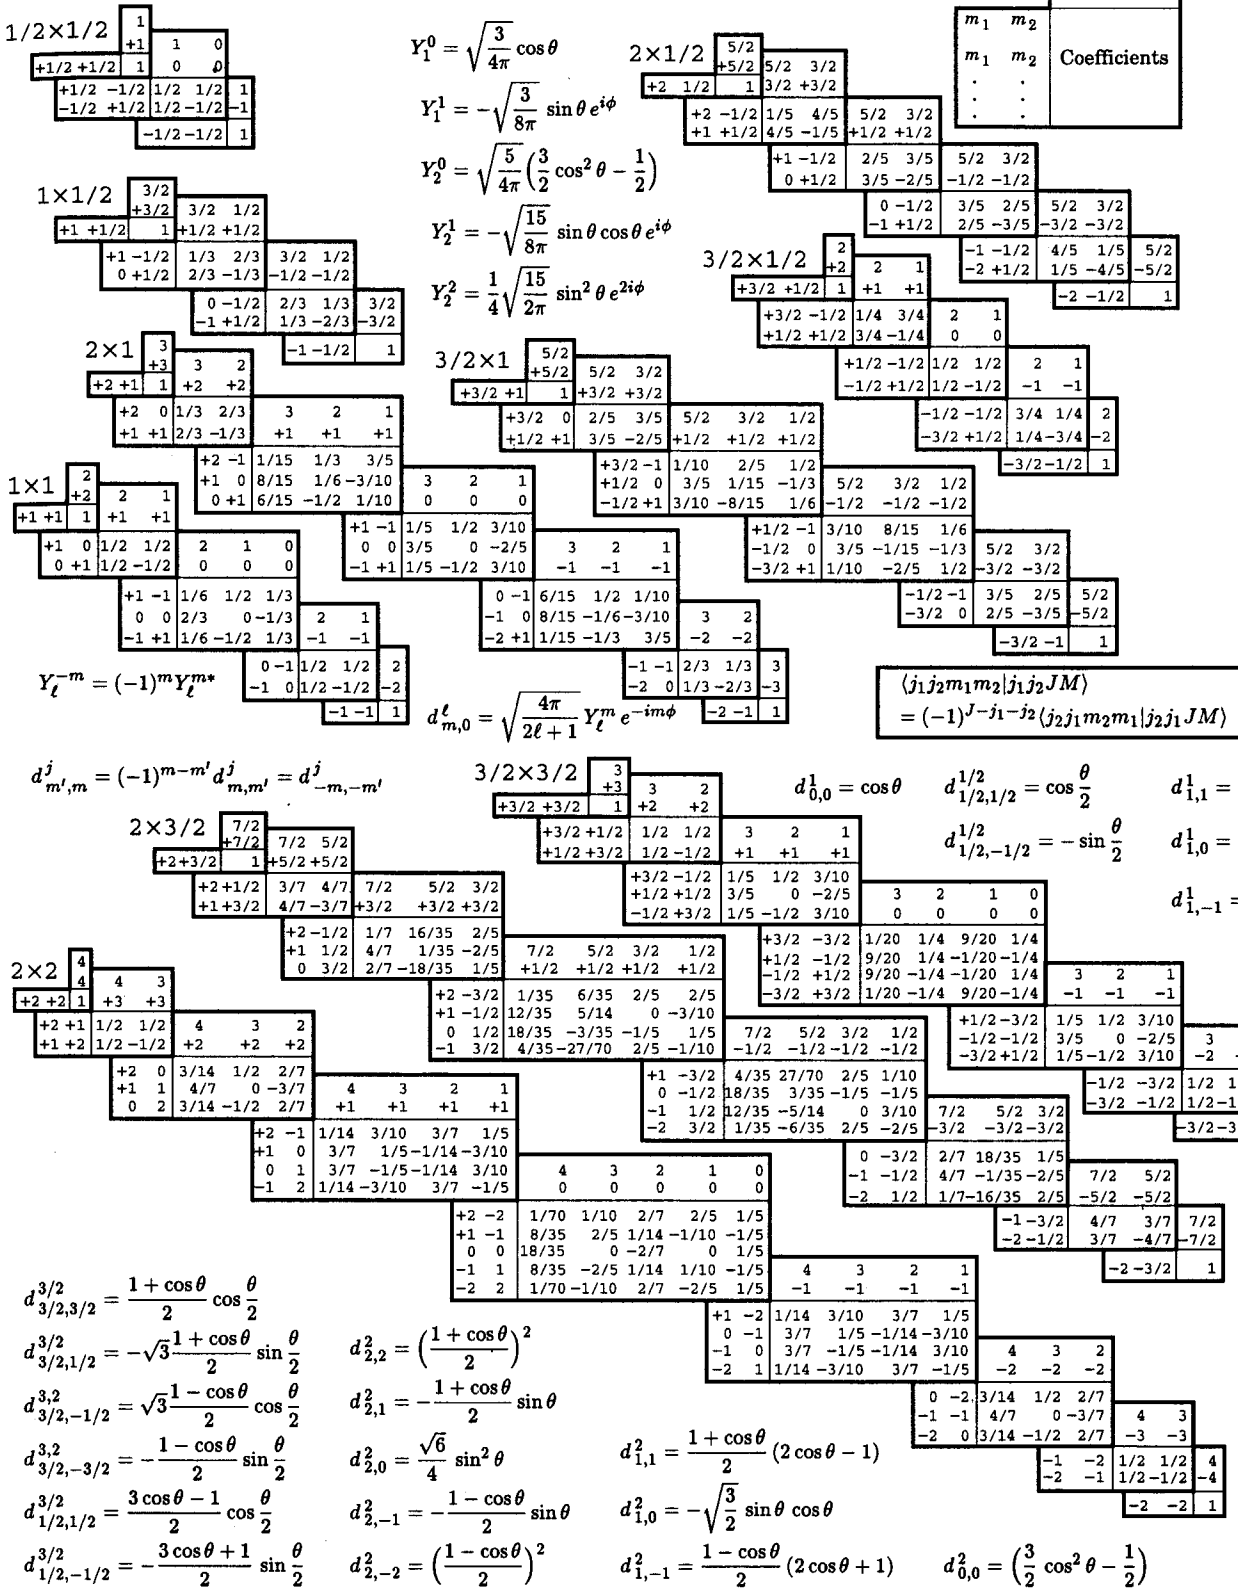 1/2×1/2
1
+1 1 0
+1/2 +1/2 1 0 0
+1/2 −1/2 1/2 1/2 1
−1/2 +1/2 1/2 −1/2 −1
−1/2 −1/2 1
Y_1^0 = √(3/4π) cos θ
Y_1^1 = −√(3/8π) sin θ e^{iϕ}
Y_2^0 = √(5/4π) (3/2 cos² θ − 1/2)
Y_2^1 = −√(15/8π) sin θ cos θ e^{iϕ}
Y_2^2 = 1/4 √(15/2π) sin² θ e^{2iϕ}
2×1/2
5/2
+5/2 5/2 3/2
+2 1/2 1 3/2 +3/2
+2 −1/2 1/5 4/5 5/2 3/2
+1 +1/2 4/5 −1/5 +1/2 +1/2
+1 −1/2 2/5 3/5 5/2 3/2
0 +1/2 3/5 −2/5 −1/2 −1/2
0 −1/2 3/5 2/5 5/2 3/2
−1 +1/2 2/5 −3/5 −3/2 −3/2
−1 −1/2 4/5 1/5 5/2
−2 +1/2 1/5 −4/5 −5/2
−2 −1/2 1
m_1 m_2
m_1 m_2 Coefficients
. .
. .
. .
1×1/2
3/2
+3/2 3/2 1/2
+1 +1/2 1 +1/2 +1/2
+1 −1/2 1/3 2/3 3/2 1/2
0 +1/2 2/3 −1/3 −1/2 −1/2
0 −1/2 2/3 1/3 3/2
−1 +1/2 1/3 −2/3 −3/2
−1 −1/2 1
3/2×1/2
2
+2 2 1
+3/2 +1/2 1 +1 +1
+3/2 −1/2 1/4 3/4 2 1
+1/2 +1/2 3/4 −1/4 0 0
+1/2 −1/2 1/2 1/2 2 1
−1/2 +1/2 1/2 −1/2 −1 −1
−1/2 −1/2 3/4 1/4 2
−3/2 +1/2 1/4 −3/4 −2
−3/2 −1/2 1
2×1
3
+3 3 2
+2 +1 1 +2 +2
+2 0 1/3 2/3 3 2 1
+1 +1 2/3 −1/3 +1 +1 +1
+2 −1 1/15 1/3 3/5
+1 0 8/15 1/6 −3/10 3 2 1
0 +1 6/15 −1/2 1/10 0 0 0
+1 −1 1/5 1/2 3/10
0 0 3/5 0 −2/5 3 2 1
−1 +1 1/5 −1/2 3/10 −1 −1 −1
0 −1 6/15 1/2 1/10
−1 0 8/15 −1/6 −3/10 3 2
−2 +1 1/15 −1/3 3/5 −2 −2
−1 −1 2/3 1/3 3
−2 0 1/3 −2/3 −3
−2 −1 1
3/2×1
5/2
+5/2 5/2 3/2
+3/2 +1 1 +3/2 +3/2
+3/2 0 2/5 3/5 5/2 3/2 1/2
+1/2 +1 3/5 −2/5 +1/2 +1/2 +1/2
+3/2 −1 1/10 2/5 1/2
+1/2 0 3/5 1/15 −1/3 5/2 3/2 1/2
−1/2 +1 3/10 −8/15 1/6 −1/2 −1/2 −1/2
+1/2 −1 3/10 8/15 1/6
−1/2 0 3/5 −1/15 −1/3 5/2 3/2
−3/2 +1 1/10 −2/5 1/2 −3/2 −3/2
−1/2 −1 3/5 2/5 5/2
−3/2 0 2/5 −3/5 −5/2
−3/2 −1 1
1×1
2
+2 2 1
+1 +1 1 +1 +1
+1 0 1/2 1/2 2 1 0
0 +1 1/2 −1/2 0 0 0
+1 −1 1/6 1/2 1/3
0 0 2/3 0 −1/3 2 1
−1 +1 1/6 −1/2 1/3 −1 −1
0 −1 1/2 1/2 2
−1 0 1/2 −1/2 −2
−1 −1 1
Y_ℓ^{−m} = (−1)^m Y_ℓ^{m*}
d^ℓ_{m,0} = √(4π/(2ℓ + 1)) Y_ℓ^m e^{−imϕ}
⟨j_1 j_2 m_1 m_2|j_1 j_2 J M⟩
= (−1)^{J−j_1−j_2} ⟨j_2 j_1 m_2 m_1|j_2 j_1 J M⟩
d^j_{m′,m} = (−1)^{m−m′} d^j_{m,m′} = d^j_{−m,−m′}
3/2×3/2
3
+3 3 2
+3/2 +3/2 1 +2 +2
+3/2 +1/2 1/2 1/2 3 2 1
+1/2 +3/2 1/2 −1/2 +1 +1 +1
+3/2 −1/2 1/5 1/2 3/10
+1/2 +1/2 3/5 0 −2/5 3 2 1 0
−1/2 +3/2 1/5 −1/2 3/10 0 0 0 0
+3/2 −3/2 1/20 1/4 9/20 1/4
+1/2 −1/2 9/20 1/4 −1/20 −1/4
−1/2 +1/2 9/20 −1/4 −1/20 1/4 3 2 1
−3/2 +3/2 1/20 −1/4 9/20 −1/4 −1 −1 −1
+1/2 −3/2 1/5 1/2 3/10
−1/2 −1/2 3/5 0 −2/5 3
−3/2 +1/2 1/5 −1/2 3/10 −2 −
−1/2 −3/2 1/2 1
−3/2 −1/2 1/2 −1
−3/2 −3
d^1_{0,0} = cos θ
d^{1/2}_{1/2,1/2} = cos θ/2
d^{1/2}_{1/2,−1/2} = − sin θ/2
d^1_{1,1} =
d^1_{1,0} =
d^1_{1,−1} =
2×3/2
7/2
+7/2 7/2 5/2
+2 +3/2 1 +5/2 +5/2
+2 +1/2 3/7 4/7 7/2 5/2 3/2
+1 +3/2 4/7 −3/7 +3/2 +3/2 +3/2
+2 −1/2 1/7 16/35 2/5
+1 1/2 4/7 1/35 −2/5 7/2 5/2 3/2 1/2
0 3/2 2/7 −18/35 1/5 +1/2 +1/2 +1/2 +1/2
+2 −3/2 1/35 6/35 2/5 2/5
+1 −1/2 12/35 5/14 0 −3/10
0 1/2 18/35 −3/35 −1/5 1/5 7/2 5/2 3/2 1/2
−1 3/2 4/35 −27/70 2/5 −1/10 −1/2 −1/2 −1/2 −1/2
+1 −3/2 4/35 27/70 2/5 1/10
0 −1/2 18/35 3/35 −1/5 −1/5
−1 1/2 12/35 −5/14 0 3/10 7/2 5/2 3/2
−2 3/2 1/35 −6/35 2/5 −2/5 −3/2 −3/2 −3/2
0 −3/2 2/7 18/35 1/5
−1 −1/2 4/7 −1/35 −2/5 7/2 5/2
−2 1/2 1/7 −16/35 2/5 −5/2 −5/2
−1 −3/2 4/7 3/7 7/2
−2 −1/2 3/7 −4/7 −7/2
−2 −3/2 1
2×2
4
4 4 3
+2 +2 1 +3 +3
+2 +1 1/2 1/2 4 3 2
+1 +2 1/2 −1/2 +2 +2 +2
+2 0 3/14 1/2 2/7
+1 1 4/7 0 −3/7 4 3 2 1
0 2 3/14 −1/2 2/7 +1 +1 +1 +1
+2 −1 1/14 3/10 3/7 1/5
+1 0 3/7 1/5 −1/14 −3/10
0 1 3/7 −1/5 −1/14 3/10 4 3 2 1 0
−1 2 1/14 −3/10 3/7 −1/5 0 0 0 0 0
+2 −2 1/70 1/10 2/7 2/5 1/5
+1 −1 8/35 2/5 1/14 −1/10 −1/5
0 0 18/35 0 −2/7 0 1/5
−1 1 8/35 −2/5 1/14 1/10 −1/5 4 3 2 1
−2 2 1/70 −1/10 2/7 −2/5 1/5 −1 −1 −1 −1
+1 −2 1/14 3/10 3/7 1/5
0 −1 3/7 1/5 −1/14 −3/10
−1 0 3/7 −1/5 −1/14 3/10 4 3 2
−2 1 1/14 −3/10 3/7 −1/5 −2 −2 −2
0 −2 3/14 1/2 2/7
−1 −1 4/7 0 −3/7 4 3
−2 0 3/14 −1/2 2/7 −3 −3
−1 −2 1/2 1/2 4
−2 −1 1/2 −1/2 −4
−2 −2 1
d^{3/2}_{3/2,3/2} = (1 + cos θ)/2 cos θ/2
d^{3/2}_{3/2,1/2} = −√3 (1 + cos θ)/2 sin θ/2
d^{3,2}_{3/2,−1/2} = √3 (1 − cos θ)/2 cos θ/2
d^{3,2}_{3/2,−3/2} = −(1 − cos θ)/2 sin θ/2
d^{3/2}_{1/2,1/2} = (3 cos θ − 1)/2 cos θ/2
d^{3/2}_{1/2,−1/2} = −(3 cos θ + 1)/2 sin θ/2
d^2_{2,2} = ((1 + cos θ)/2)^2
d^2_{2,1} = −(1 + cos θ)/2 sin θ
d^2_{2,0} = √6/4 sin² θ
d^2_{2,−1} = −(1 − cos θ)/2 sin θ
d^2_{2,−2} = ((1 − cos θ)/2)^2
d^2_{1,1} = (1 + cos θ)/2 (2 cos θ − 1)
d^2_{1,0} = −√(3/2) sin θ cos θ
d^2_{1,−1} = (1 − cos θ)/2 (2 cos θ + 1)
d^2_{0,0} = (3/2 cos² θ − 1/2)